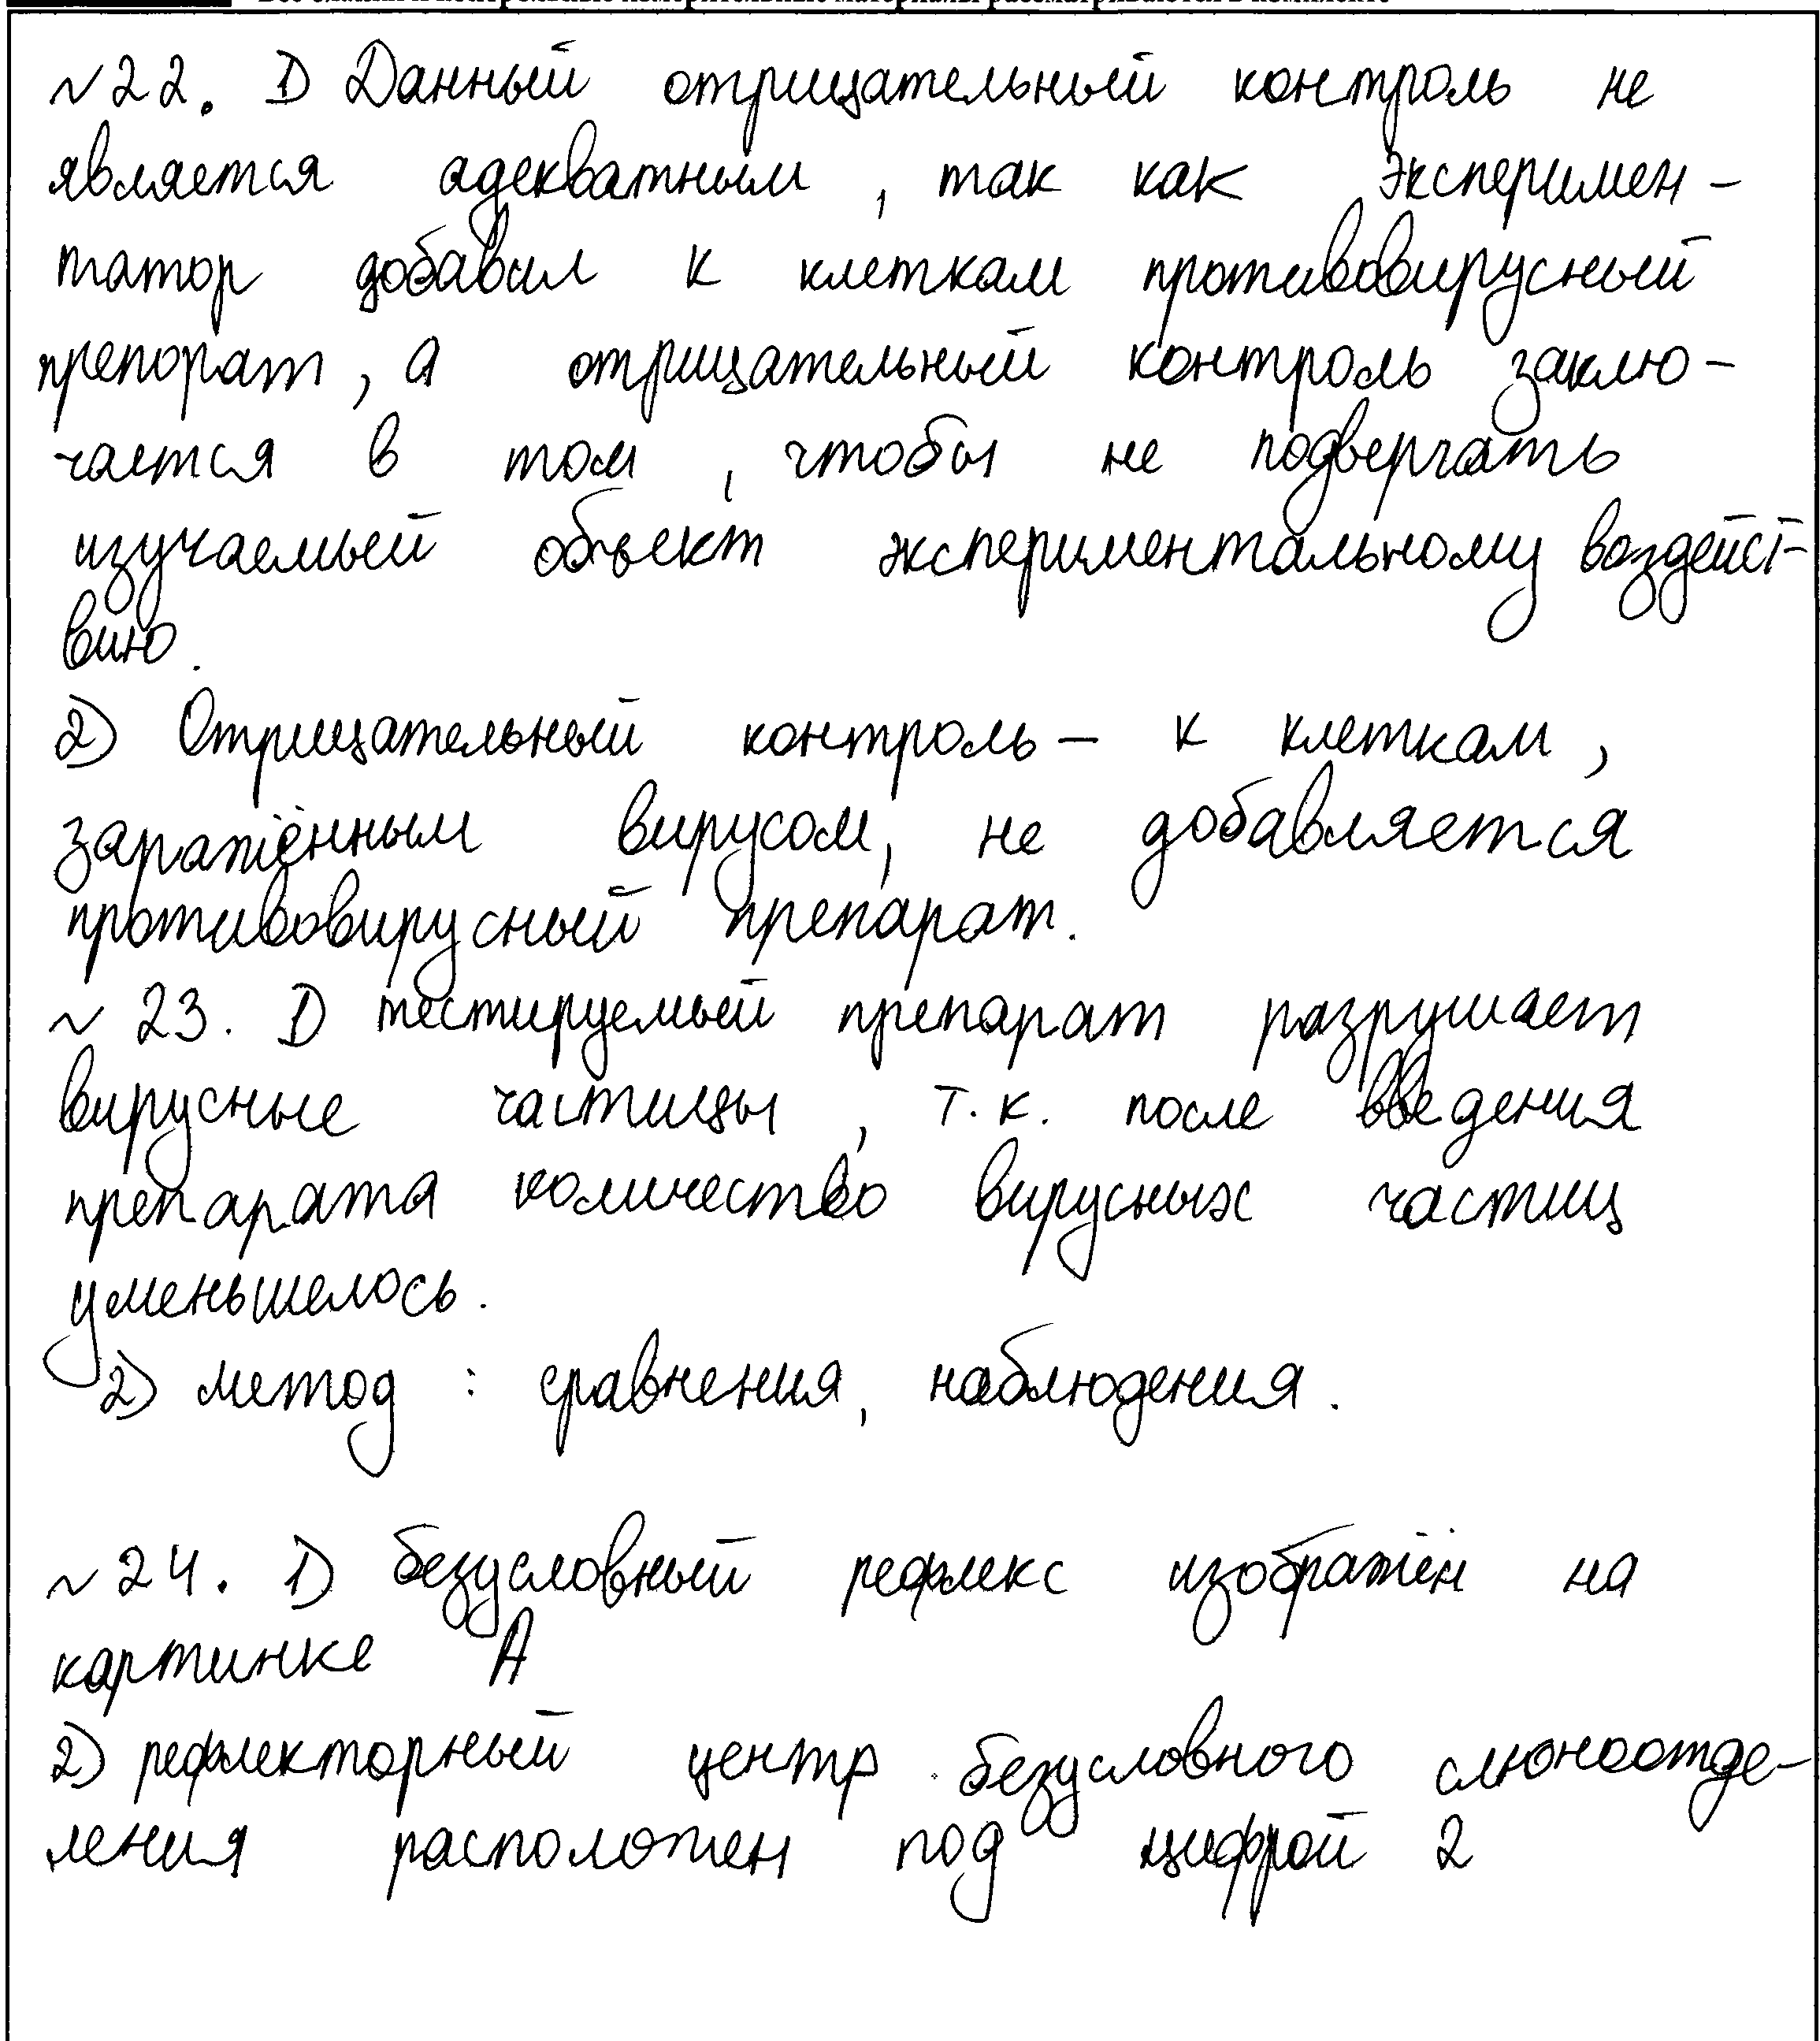 Все бланки и контрольные измерительные материалы рассматриваются в комплекте
№22. 1) Данный отрицательный контроль не
является адекватным, так как эксперимен-
татор добавил к клеткам противовирусный
препорат, а отрицательный контроль заклю-
чается в том, чтобы не подвергать
изучаемый объект экспериментальному воздейст-
вию.
2) Отрицательный контроль – к клеткам,
заражённым вирусом, не добавляется
противовирусный препарат.
№ 23. 1) тестируемый препарат разрушает
вирусные частицы, т.к. после введения
препарата количество вирусных частиц
уменьшелось.
2) метод : сравнения, наблюдения.
№ 24. 1) безусловный рефлекс изображён на
картинке А
2) рефлекторный центр безусловного слюноотде-
ления расположен под цифрой 2